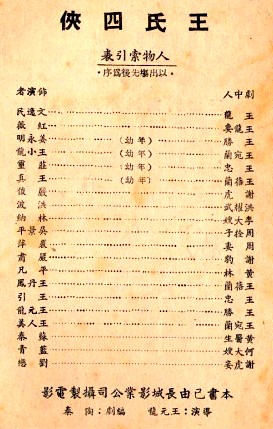 王氏四俠
人物索引表
·以出場先後爲序·
劇中人 飾演者
王龍……文逸民
王龍妻……紅薇
王勝(幼年)……姜永明
王宛蘭(幼年)……王小龍
王忠(幼年)……莊重
王蓓蘭(幼年)……王真
謝虎……嚴俊
洪耀武……洪波
李大嫂……林納
周栓子……吳景平
周妻……袁萍
謝豹……嚴肅
黃林……平凡
王蓓蘭……王丹鳳
王忠……王引
王勝……王元龍
王宛蘭……王人美
黃醫生……蘇秦
何大嫂……藍青
謝虎妻……劉戀
本書已由長城影業公司攝製電影
導演:王元龍 編劇:陶秦